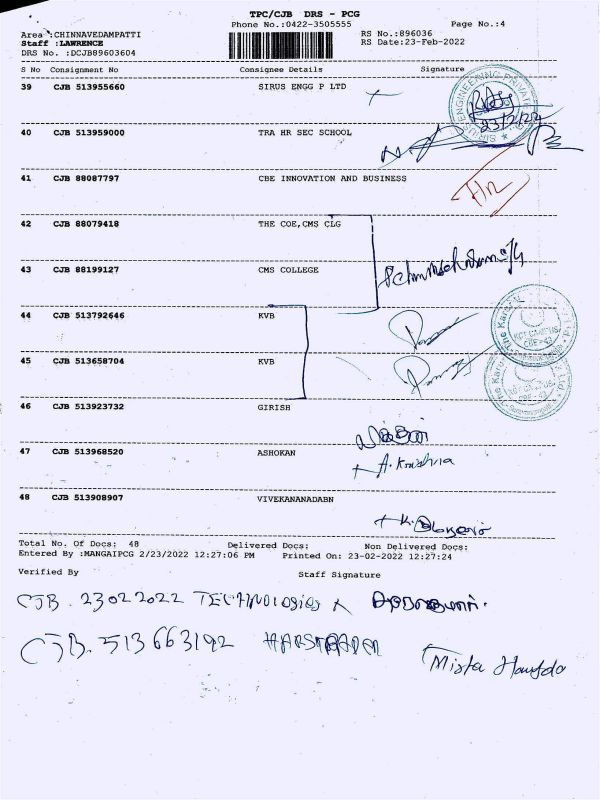 TPC/CJB DRS - PCG
Phone No.:0422-3505555
Page No.:4
Area :CHINNAVEDAMPATTI
Staff :LAWRENCE
DRS No. :DCJB89603604
RS No.:896036
RS Date:23-Feb-2022
S No Consignment No Consignee Details Signature
39 CJB 513955660 SIRUS ENGG P LTD
23/2/22
40 CJB 513959000 TRA HR SEC SCHOOL
41 CJB 88087797 CBE INNOVATION AND BUSINESS
42 CJB 88079418 THE COE,CMS CLG
43 CJB 88199127 CMS COLLEGE
44 CJB 513792646 KVB
45 CJB 513658704 KVB
46 CJB 513923732 GIRISH
47 CJB 513968520 ASHOKAN
A. Krishna
48 CJB 513908907 VIVEKANANADABN
Total No. Of Docs: 48 Delivered Docs: Non Delivered Docs:
Entered By :MANGAIPCG 2/23/2022 12:27:06 PM Printed On: 23-02-2022 12:27:24
Verified By Staff Signature
CJB. 23022022 TECHNOLOGIES
CJB. 513663192